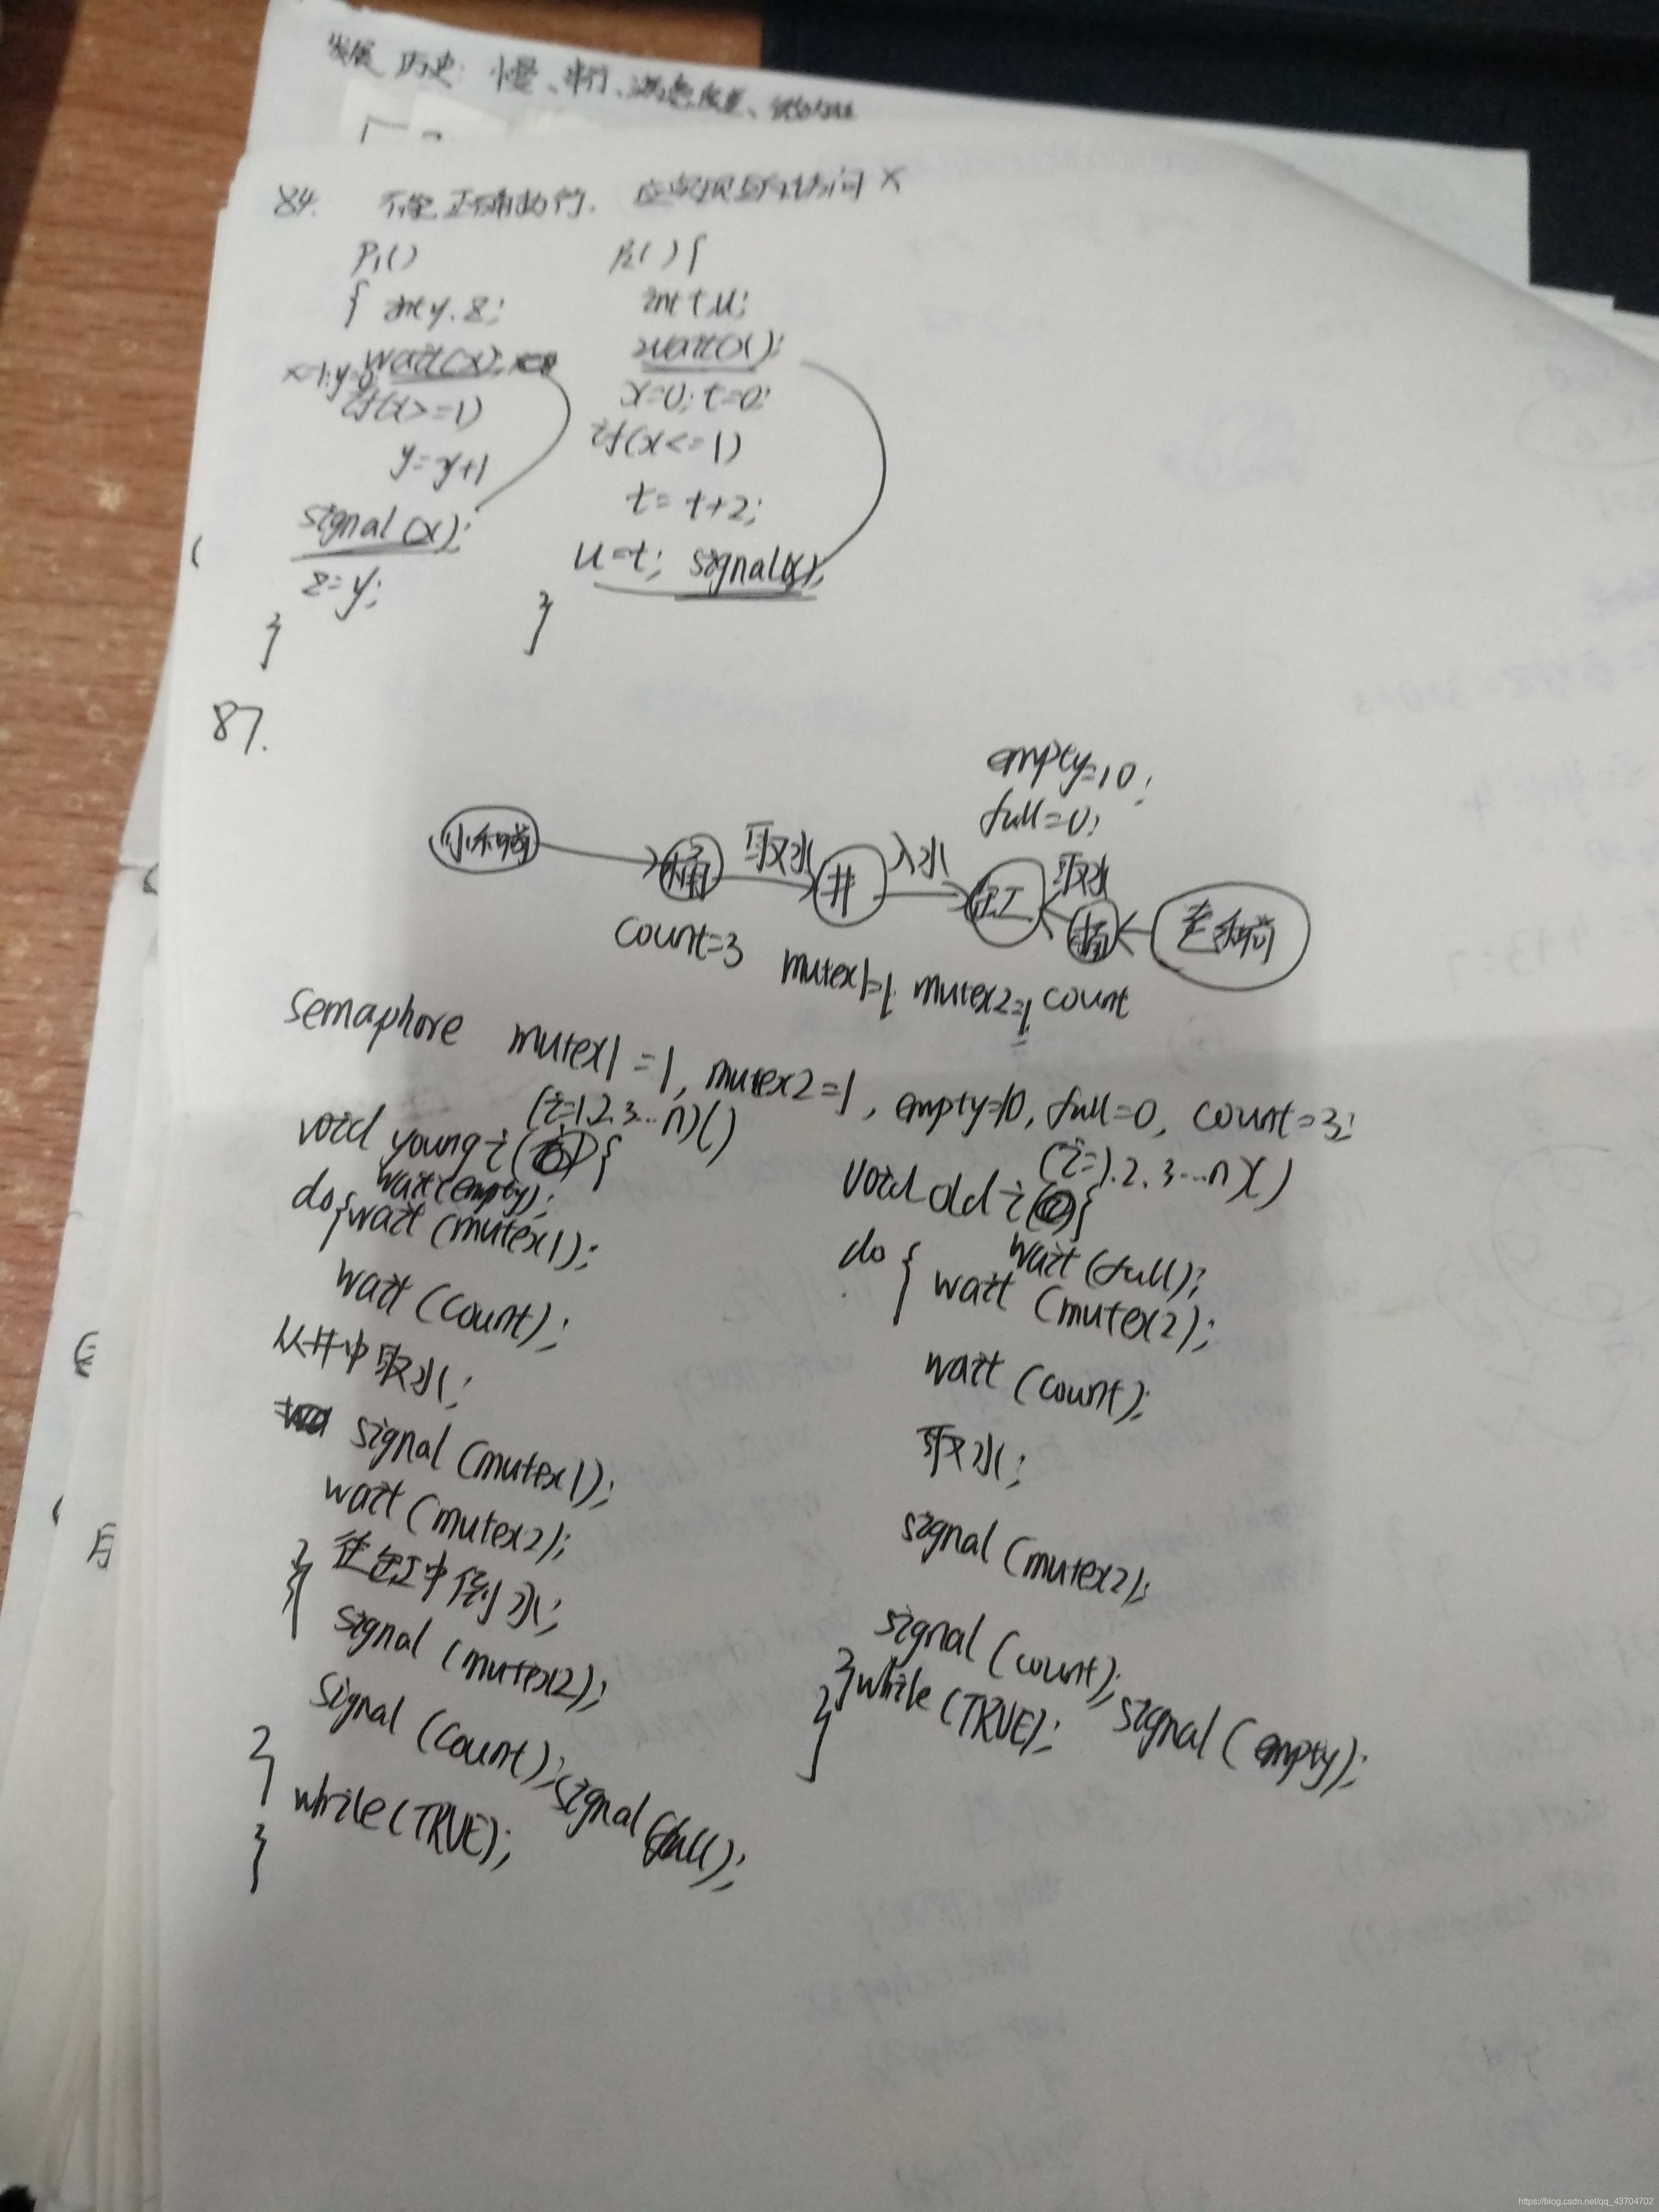 发展历史: 慢、串行、
84. 不能正确执行. 应实现互斥访问 x
P1()
{ int y, z;
wait(x);
x=1; y=0;
if(x>=1)
y=y+1
signal(x);
z=y;
}
P2(){
int t, u;
wait(x);
x=0; t=0;
if(x<=1)
t=t+2;
u=t; signal(x);
}
87.
empty=10;
full=0;
小和尚 桶 取水 井 入水 缸 取水 桶 老和尚
count=3 mutex1=1 mutex2=1 count
semaphore mutex1=1, mutex2=1, empty=10, full=0, count=3;
(i=1.2.3...n)()
void young i {
do{ wait(empty);
wait(mutex1);
wait(count);
从井中取水;
signal(mutex1);
wait(mutex2);
往缸中倒水;
signal(mutex2);
signal(count); signal(full);
}
while(TRUE);
}
(i=1.2.3...n)()
void old i {
do { wait(full);
wait(mutex2);
wait(count);
取水;
signal(mutex2);
signal(count); signal(empty);
}while(TRUE);
}
月
https://blog.csdn.net/qq_43704702